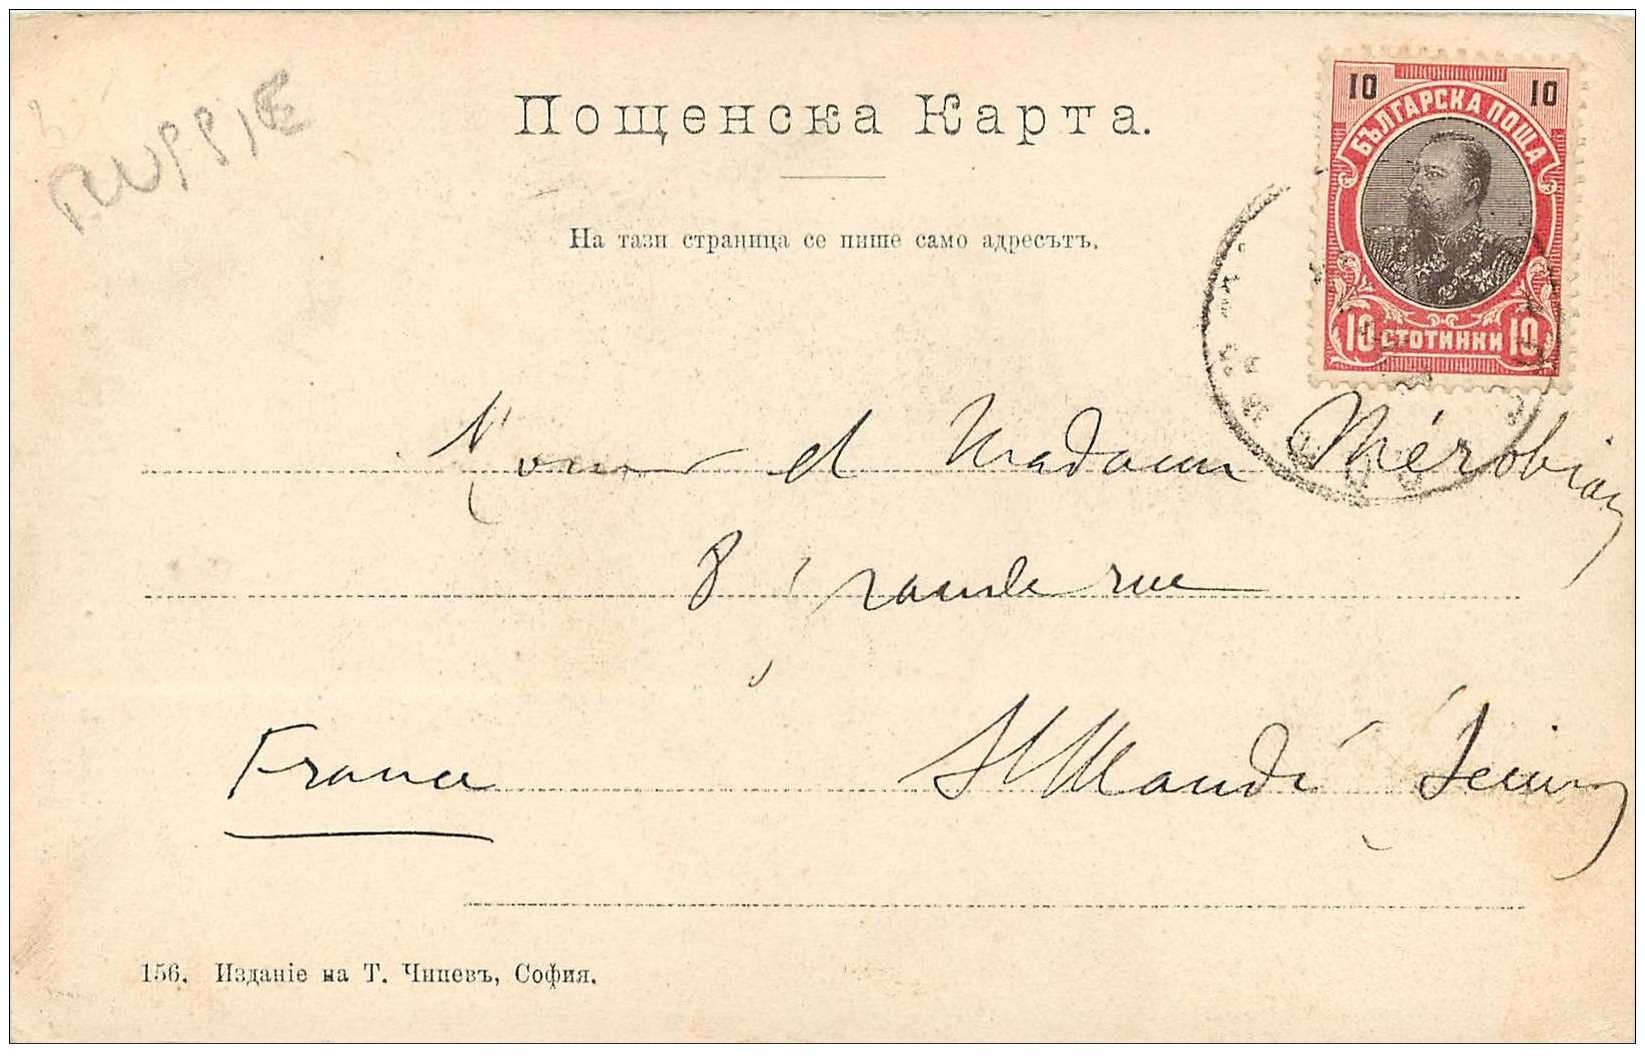 RUSSIE
Пощенска Карта.
На тази страница се пише само адресътъ.
10 10
БЪЛГАРСКА ПОЩА
10 СТОТИНКИ 10
et Madame
8 grande rue
St Mandé Seine
France
156. Издание на Т. Чипевъ, София.